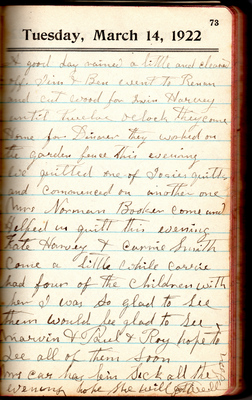 73
Tuesday, March 14, 1922
A good day rained a little and cleared
off Jim & Ben went to
and cut wood for Harvey
until twelve oclock they come
Home for Dinner they worked on
the garden fence this evening
We quilted one of Josies quilts
and commenced on another one
Mrs Norman Booker come and
helped us quilt this evening
Kate Harvey & Carrie Smith
Come a little while Carrie
had four of the children with
her I was so glad to see
them would be glad to see
Marvin & & Roy hope to
see all of them soon
has bin Sick all the
evening hope she will